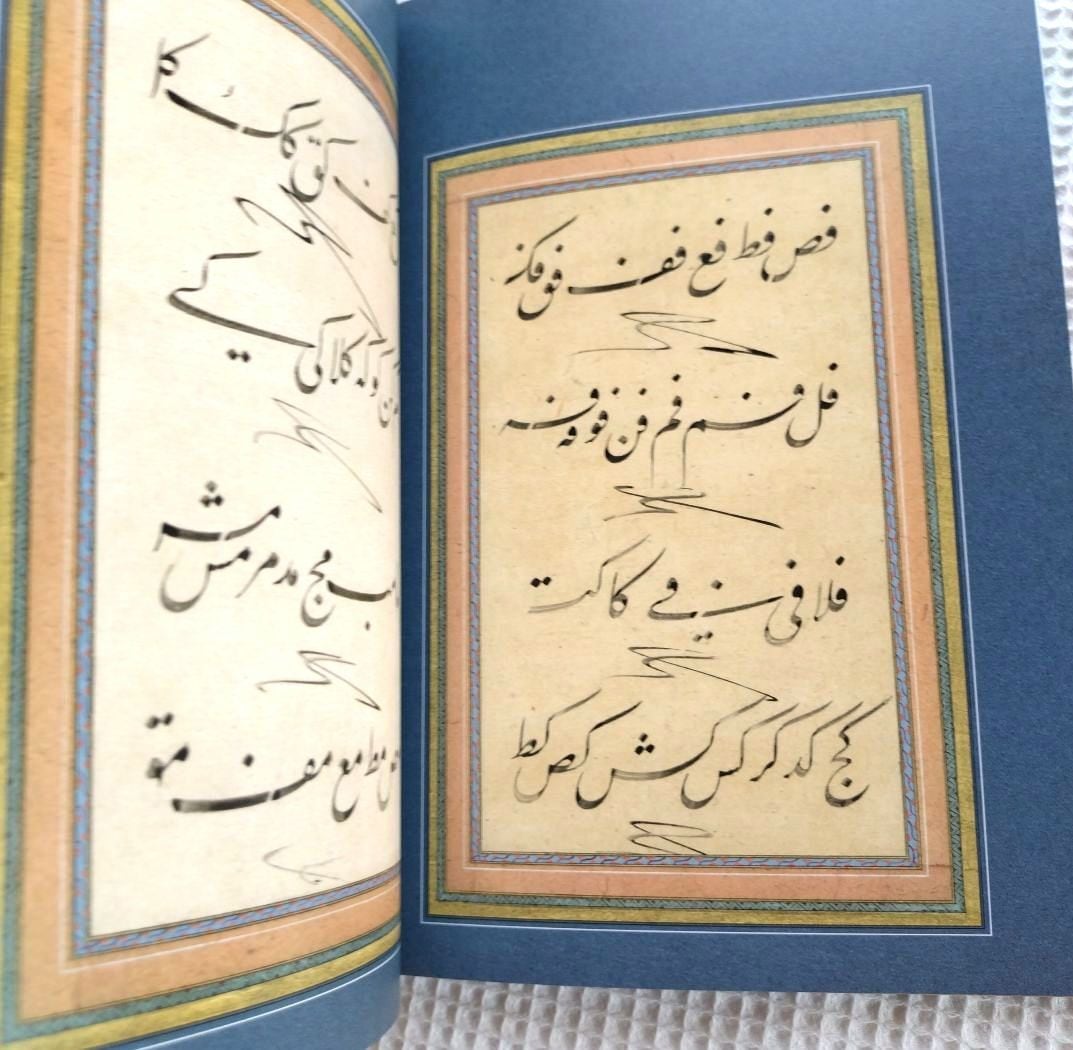 فص فط فع فف فق فک
فل فم فم فن فو فه فه
فلا فی فے کا کت
کج کد کر کس کش کص کط
کق کک
کن کو که کلا کی کے
مب مج مد مر مس مش
مص مط مع مف مق